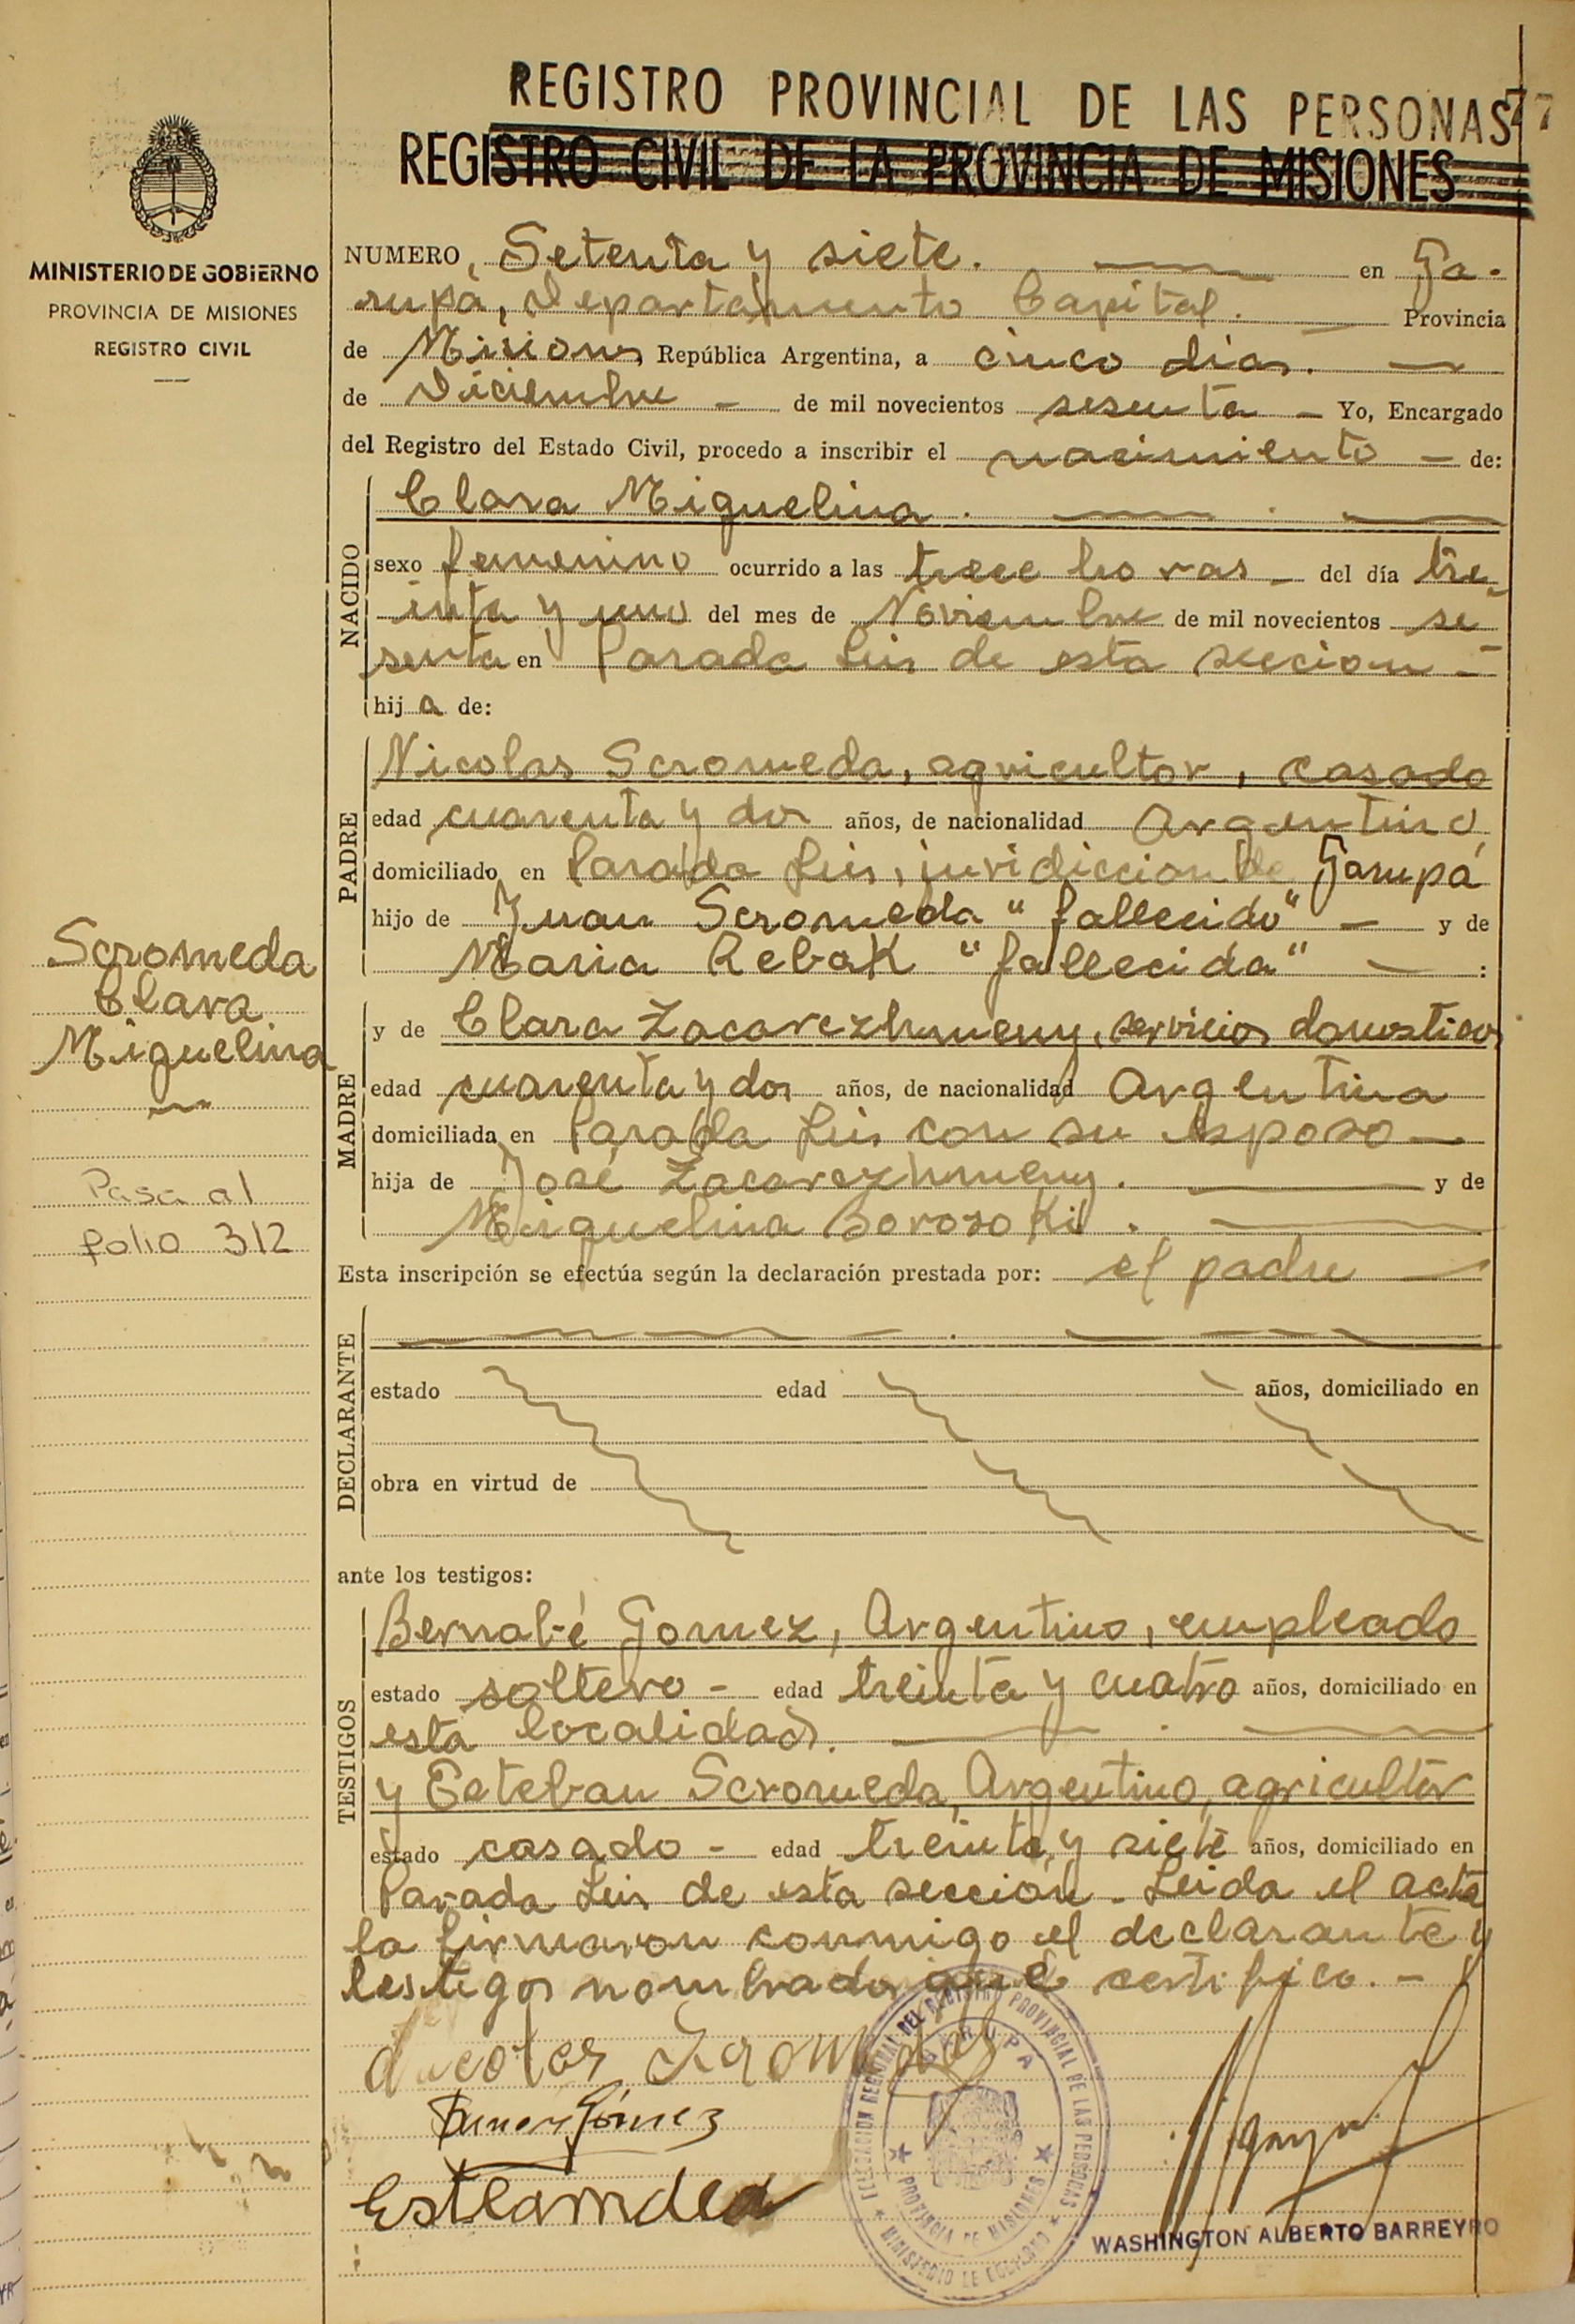 REGISTRO PROVINCIAL DE LAS PERSONAS 77
REGISTRO CIVIL DE LA PROVINCIA DE MISIONES
MINISTERIO DE GOBIERNO
PROVINCIA DE MISIONES
REGISTRO CIVIL
NUMERO, Setenta y siete. en Ga-
rupá, Departamento Capital. Provincia
de Misiones República Argentina, a cinco dias.
de Diciembre - de mil novecientos sesenta - Yo, Encargado
del Registro del Estado Civil, procedo a inscribir el nacimiento - de:
NACIDO
Clara Miguelina.
sexo femenino ocurrido a las trece horas - del día tre-
inta y uno del mes de Noviembre de mil novecientos se-
senta en Parada Leis de esta seccion -
hija de:
PADRE
Nicolas Scromeda, agricultor, casado
edad cuarenta y dos años, de nacionalidad Argentino
domiciliado en Parada Leis, juridiccion de Garupá
hijo de Juan Scromeda "fallecido" - y de
Maria Rebak "fallecida" - :
Scromeda
Clara
Miguelina
Pasa al
folio 312
MADRE
y de Clara Zacarezhmeny, servicios domesticos
edad cuarenta y dos años, de nacionalidad Argentina
domiciliada en Parada Leis con su esposo -
hija de José Zacarezhmeny. y de
Miguelina Borosoki.
Esta inscripción se efectúa según la declaración prestada por: el padre
DECLARANTE
estado edad años, domiciliado en
obra en virtud de
ante los testigos:
TESTIGOS
Bernabé Gomez, Argentino, empleado
estado soltero - edad treinta y cuatro años, domiciliado en
esta localidad.
y Esteban Scromeda, Argentino, agricultor
estado casado - edad treinta y siete años, domiciliado en
Parada Leis de esta seccion. Leida el acta
la firmaron conmigo el declarante y
testigos nombrados que certifico. -
DELEGACION REGIONAL DEL REGISTRO PROVINCIAL DE LAS PERSONAS
GARUPA
PROVINCIA DE MISIONES
MINISTERIO DE GOBIERNO
WASHINGTON ALBERTO BARREYRO